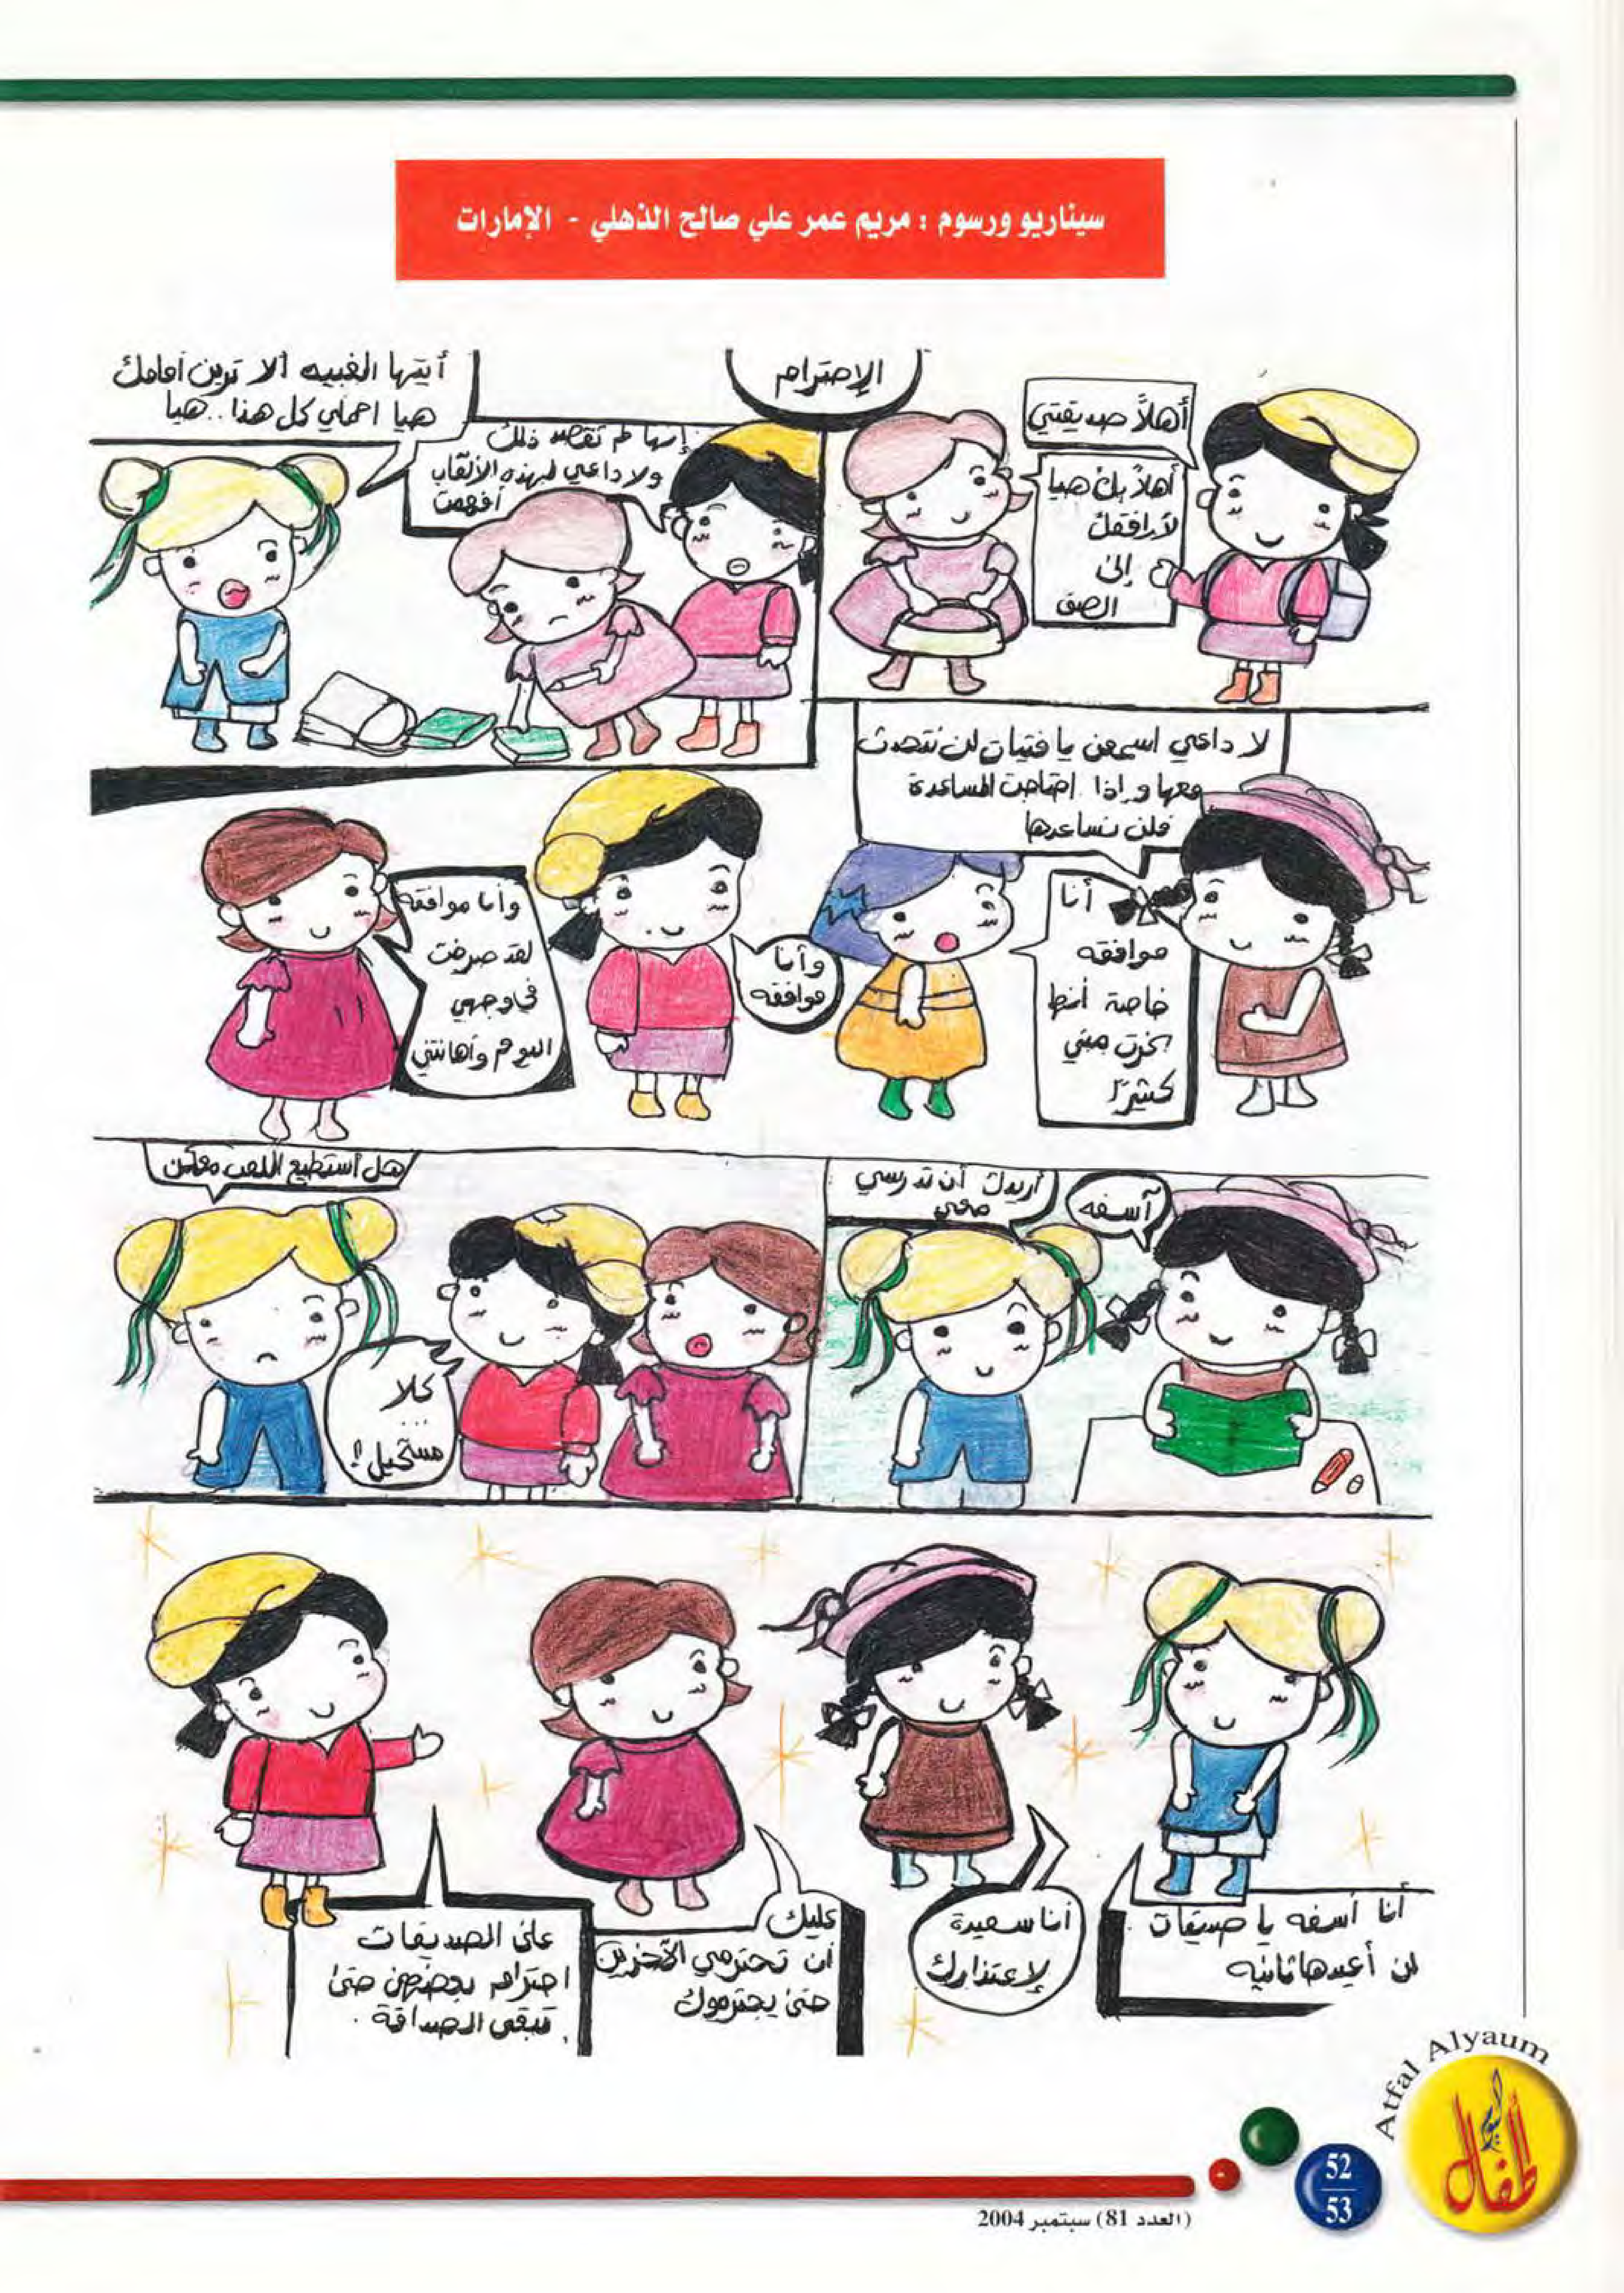 سيناريو ورسوم : مريم عمر علي صالح الذهلي - الإمارات
الإحترام
أهلاً صديقتي
أهلاً بك هيا
لأرافقك
إلى
الصف
أيتها الغبيه ألا ترين أمامك
هيا احملي كل هذا..هيا
إنها لم تقصد ذلك
ولا داعي لهذه الألقاب
أفهمت
لا داعي اسمعن يا فتيات لن نتحدث
معها وإذا احتاجت المساعدة
فلن نساعدها
أنا
موافقه
خاصة أنها
سخرت مني
كثيرًا
وأنا
موافقه
وأنا موافقه
لقد صرخت
في وجهي
اليوم وأهانتني
أريدك أن تدرسي
معي
آسفه
هل أستطيع اللعب معكن
كلا
...
مستحيل!!
أنا أسفه يا صديقات
لن أعيدها ثانيه
أنا سعيدة
لإعتذارك
عليك
أن تحترمي الآخرين
حتى يحترموك
على الصديقات
احترام بعضهن حتى
تبقى الصداقة .
Atfal Alyaum
أطفال اليوم
52
53
(العدد 81) سبتمبر 2004